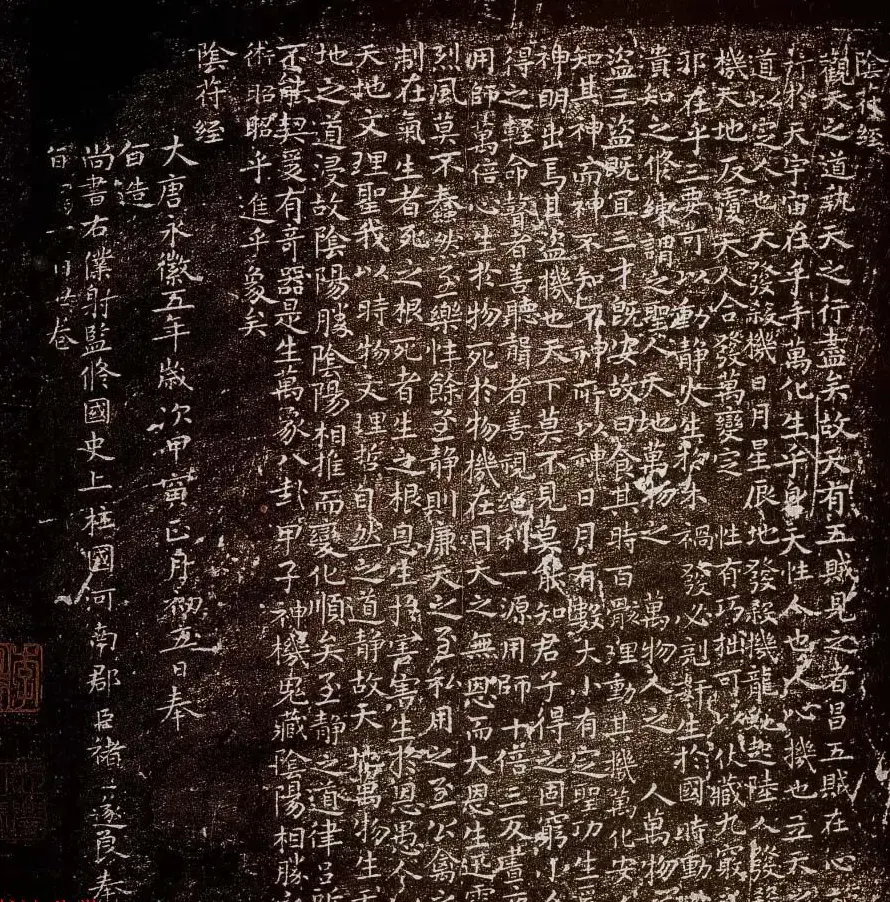 陰符經
觀天之道執天之行盡矣故天有五賊見之者昌五賊在心
行於天宇宙在乎手萬化生乎身天性人也人心機也立天之
道以定人也天發殺機日月星辰地發殺機龍虵起陸人發
機天地反覆天人合發萬變定 性有巧拙可以伏藏九竅
邪在乎三要可以動靜火生於木禍發必剋奸生於國時動
貴知之修練謂之聖人天地萬物之 萬物人之 人萬物
盜三盜既宜三才既安故曰食其時百骸理動其機萬化安
知其神而神不知不神所以神日月有數大小有定聖功生
神明出焉其盜機也天下莫不見莫能知君子得之固窮小
得之輕命瞽者善聽聾者善視絕利一源用師十倍三反晝
用師萬倍心生於物死於物機在目天之無恩而大恩生迅
烈風莫不蠢然至樂性餘至靜則廉天之至私用之至公禽
制在氣生者死之根死者生之根恩生於害害生於恩愚人
天地文理聖我以時物文理哲自然之道靜故天地萬物生
地之道浸故陰陽勝陰陽相推而變化順矣至靜之道律呂所
不能契爰有奇器是生萬象八卦甲子神機鬼藏陰陽相勝
術昭昭乎進乎象矣
陰符經
大唐永徽五年歲次甲寅正月初五日奉
旨造
尚書右僕射監修國史上柱國河南郡臣褚遂良奉
旨寫一百廿卷